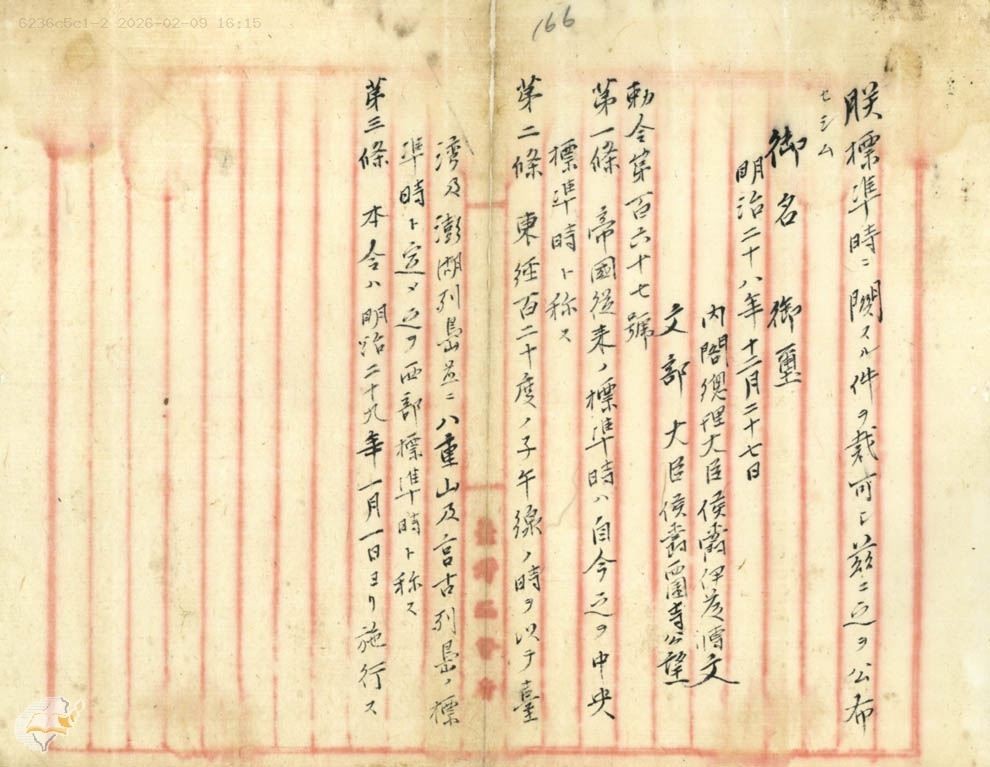 6236c5c1-2 2026-02-09 16:15
166
朕標準時ニ関スル件ヲ裁可シ茲ニ之ヲ公布
セシム
御名 御璽
明治二十八年十二月二十七日
内閣總理大臣侯爵伊藤博文
文部大臣侯爵西園寺公望
勅令第百六十七號
第一條 帝國従来ノ標準時ハ自今之ヲ中央
標準時ト称ス
第二條 東経百二十度ノ子午線ノ時ヲ以テ臺
湾及澎湖列島並ニ八重山及宮古列島ノ標
準時ト定メ之ヲ西部標準時ト称ス
第三條 本令ハ明治二十九年一月一日ヨリ施行ス
臺灣總督府